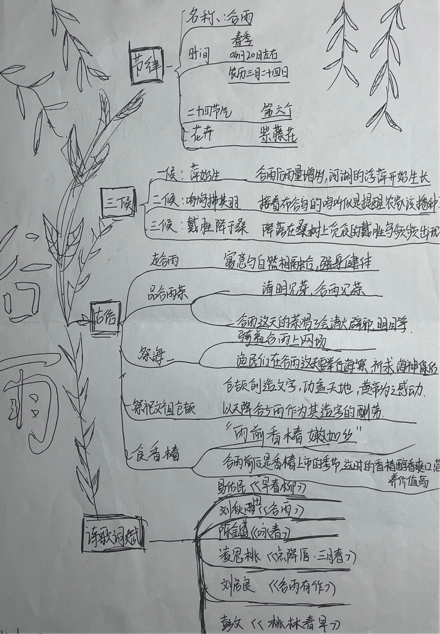 谷雨
节律
名称：谷雨
时间
春季
4月20日左右
农历三月二十四日
二十四节气 第六个
花卉 紫藤花
三候
一候：萍始生 谷雨后雨量增多，河湖的浮萍开始生长
二候：鸣鸠拂其羽 接着布谷鸟的鸣叫似是提醒农家该播种
三候：戴胜降于桑 降落在桑树上
习俗
走谷雨 寓意与自然相融合，强身健体
品谷雨茶 清明见芽，谷雨见茶
谷雨这天的茶喝了会清火辟邪，明目等
祭海 骑着谷雨上网场
渔民们在谷雨这天要举行海祭，祈求海神保佑
祭祀文祖仓颉
仓颉创造文字，功盖天地，黄帝为之感动
以天降谷雨作为其造字的酬劳
食香椿 "雨前香椿嫩如丝"
谷雨前后是香椿上市的季节，这时的香椿醇香爽口营
养价值高
诗歌词赋
易佑民《早春柳》
《谷雨》
《咏春》
《点绛唇·三月春》
《谷雨有作》
《桃林春早》